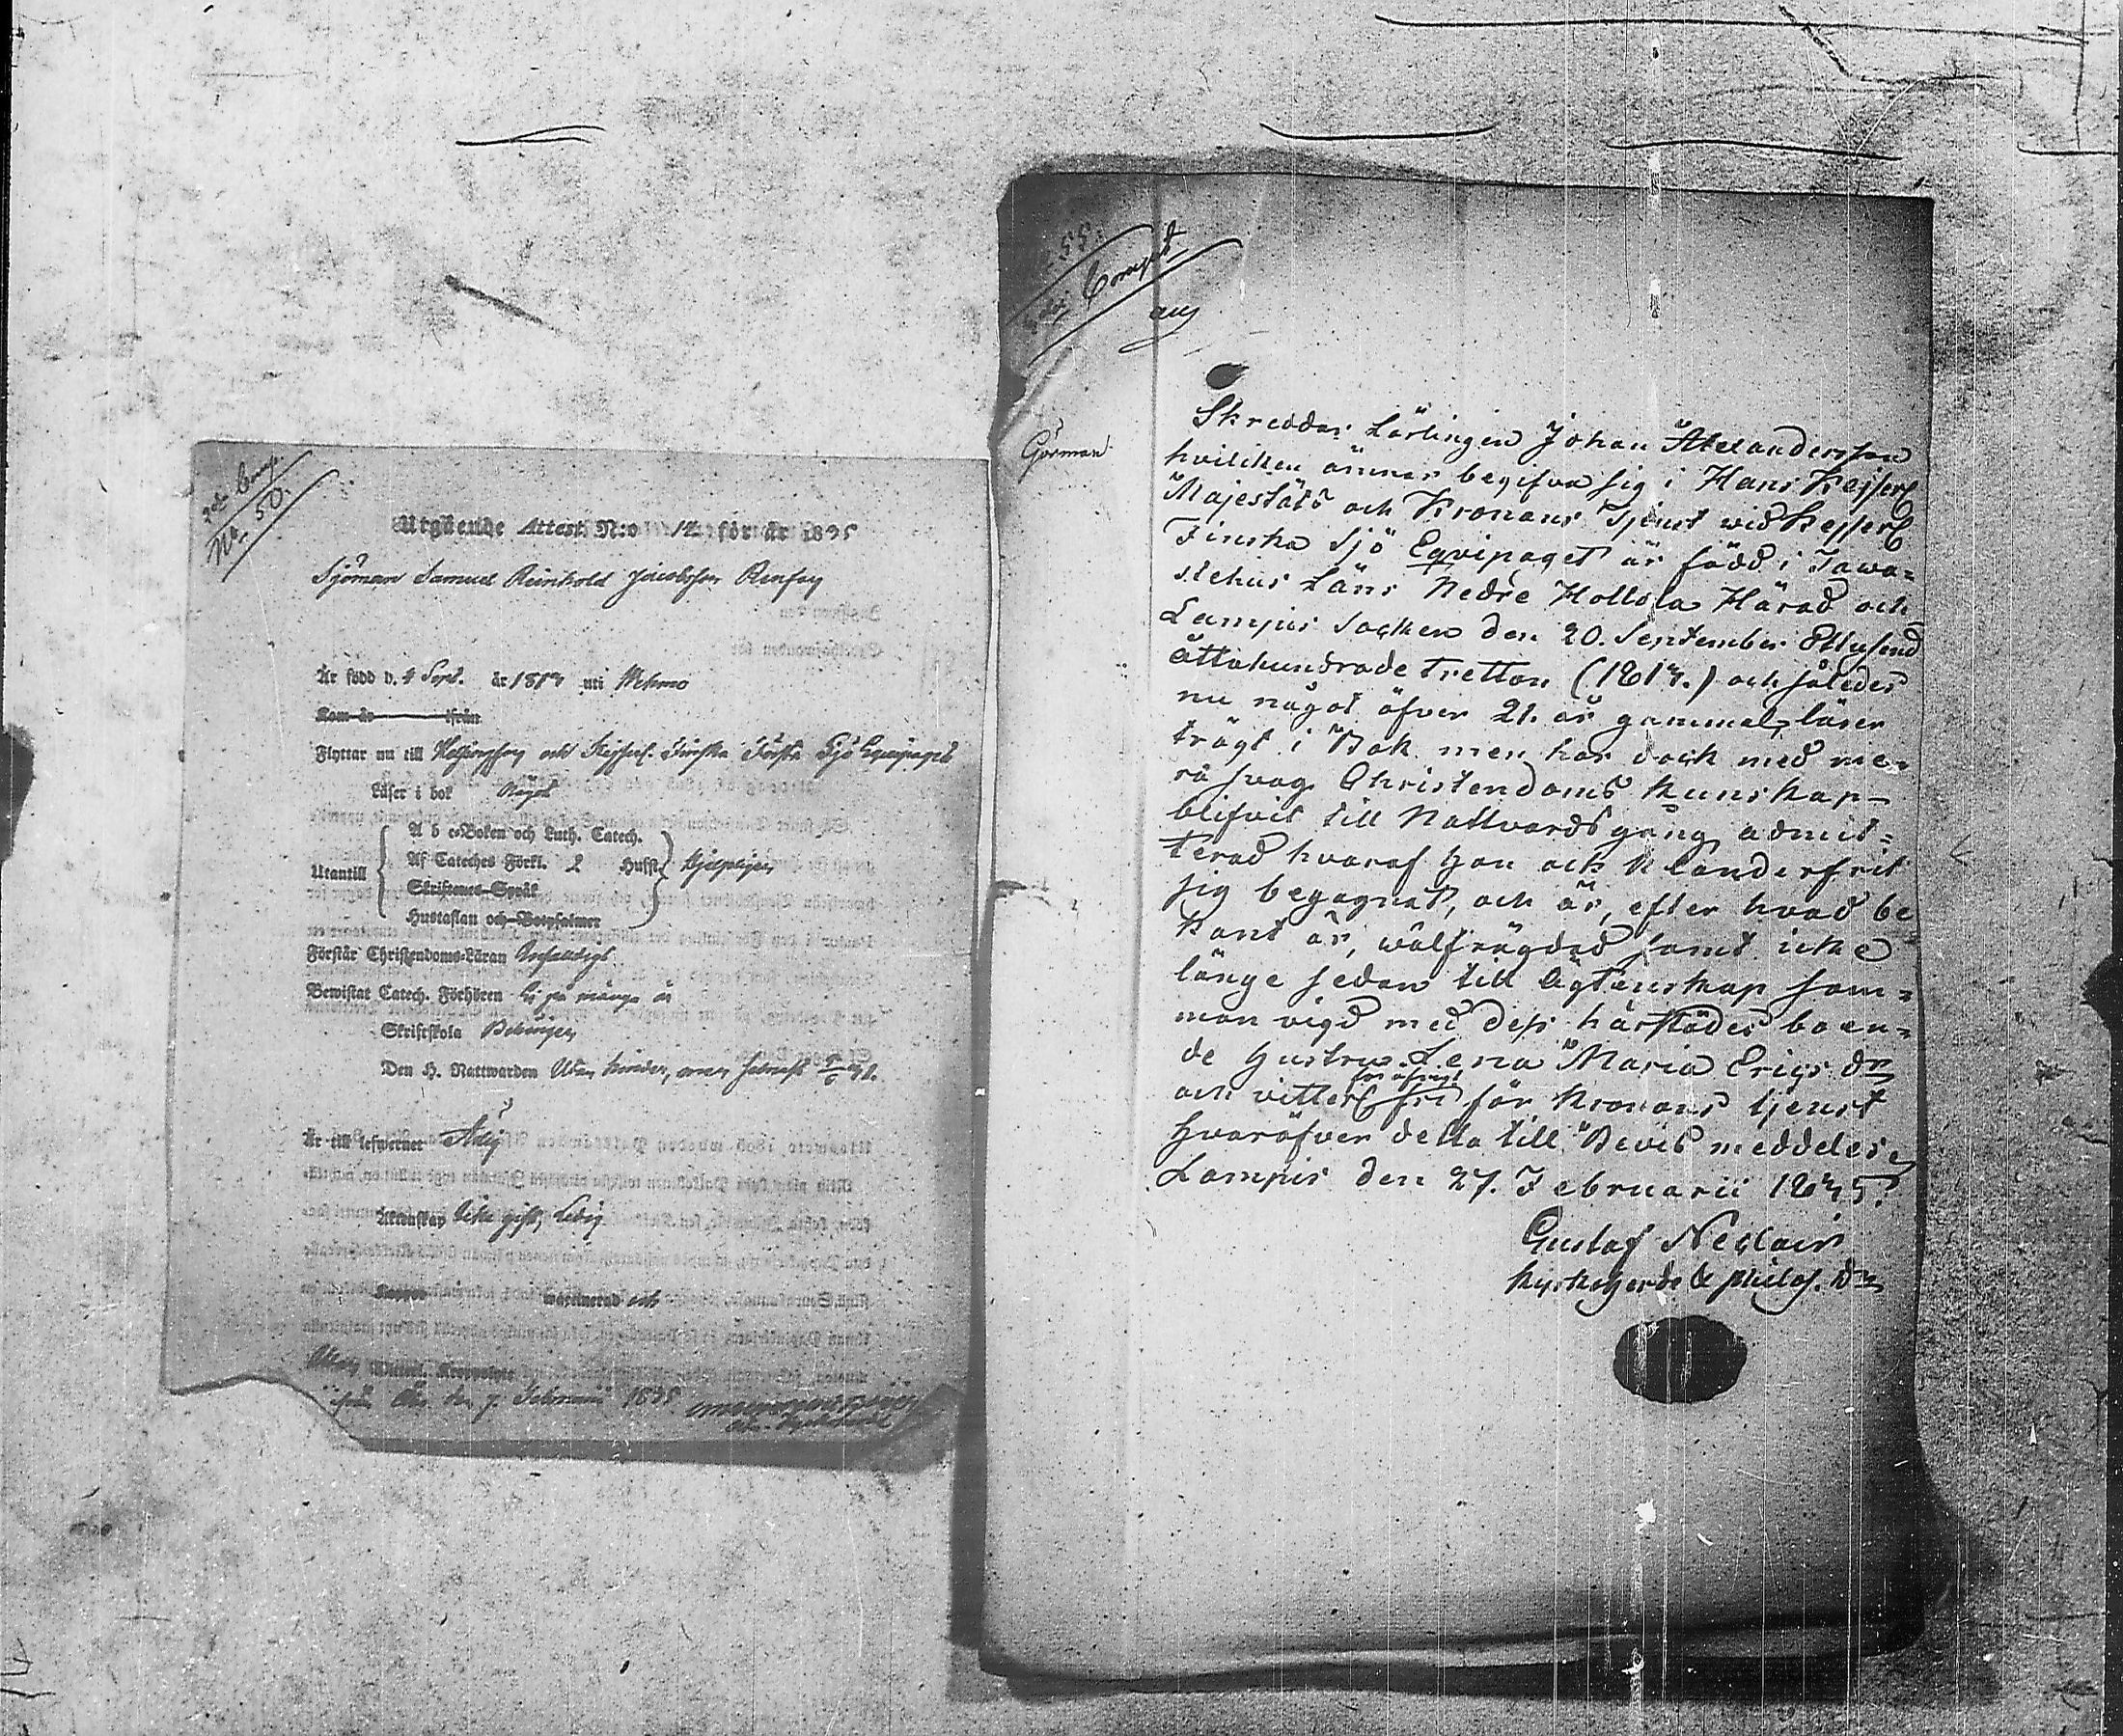 2dra Comp.
No. 50.
Utgående Attest N:o 12 för år 1835
Sjöman Samuel Reinhold Jacobsson Renfors
Är född d. 4 Sept. år 1813 uti Wehmo
Kom år ifrån
Flyttar nu till Helsingfors och Kejserl. Finska Första Sjö Equipaget
Läser i bok Något
Utantill
A b c-Boken och Luth. Catech.
Af Cateches Förkl. 2 Hufst. hjelpligen
Skriftenes Språk
Hustaflan och Botpsalmer
Förstår Christendoms-Läran
Bewistat Catech. Förhören Ej på många år
Skriftskola Behörigen
Den H. Nattwarden Utan hinder, men senast
Är till lefwernet Ärlig
Äktenskap Icke gift, Ledig
Koppor waccinerad och
Utan Kroppslyte
från Åbo den 7. Februarii 1835
55.
2dra Comp.
Görman
Skreddar Lärlingen Johan Alexandersson
hvilcken ämnar begifva sig i Hans Kejserl
Majestäts och Kronans Tjenst wid Kejserl
Finska Sjö Eqvipaget är född i Tawa=
stehus Läns Nedre Hollola Härad och
Lampis Socken den 20. September Ettusend
åttahundrade tretton (1813.) och således
nu något öfver 21. år gammal, läser
trögt i Bok men har dock med me=
ra svag Christendoms Kunskap
blifvit till Nattvardsgång admit=
terad hvaraf han ock klanderfrit
sig begagnat, och är, efter hvad be
kant är, wälfrägdad samt icke
länge sedan till ägtenskap sam=
man vigd med dess härstädes boen=
de hustru Lena Maria Erics dr
och vitterl. fri för Kronans tjenst
Hvaröfver detta till Bevis meddeles,
Lampis den 27. Februarii 1835.
Gustaf Neclair
Kyrkoherde & philos. Dr